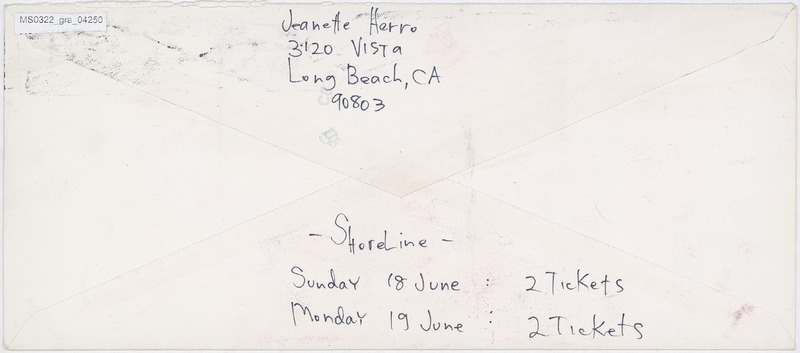 MS0322_gra_04250
Jeanette Herro
3120 VISTA
Long Beach, CA
90803
- ShoreLine -
Sunday 18 June : 2 Tickets
Monday 19 June : 2 Tickets